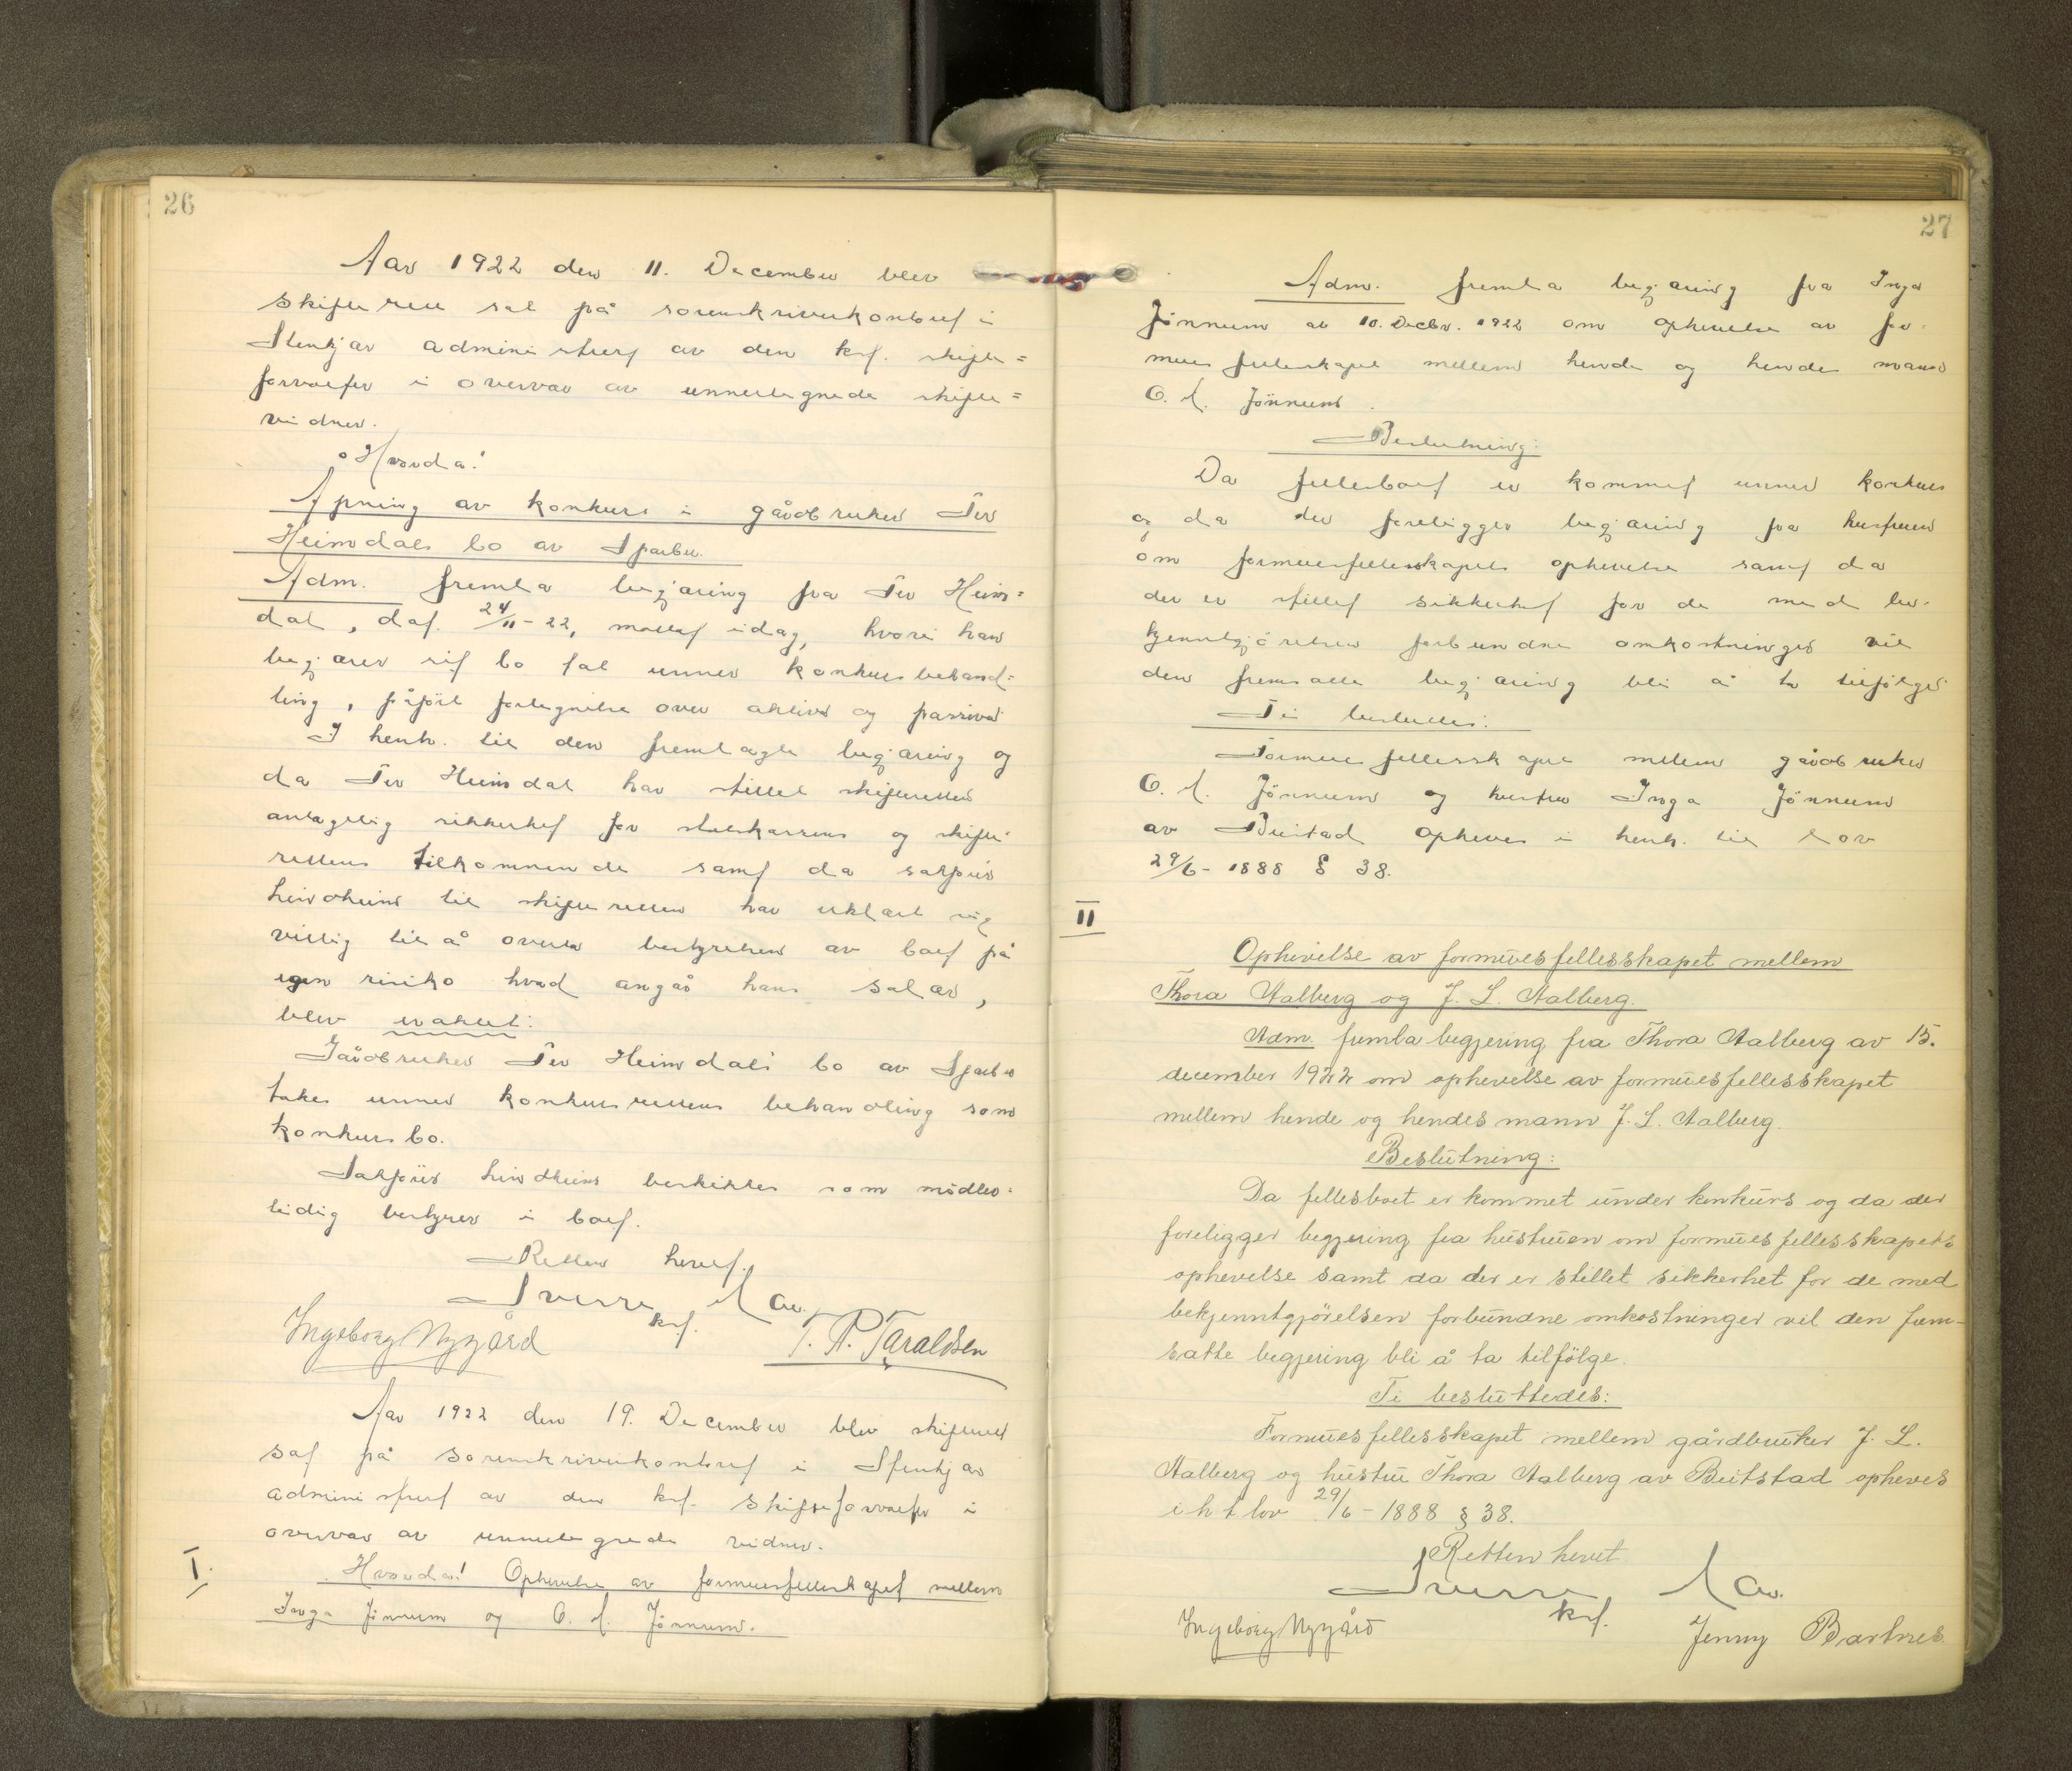 26
Aar 1922 den 11. December blev
skifteret sat på sorenskriverkontoret i
Stenkjær administrert av den kst. skifte=
forvalter i overvær av unnertegnede skifte=
vidner.
Hvorda:
Åpning av konkurs i gårdbruker Per
Heimdals bo av Sparbu.
Adm. fremla begjæring fra Per Heim=
dal, dat. 24/11-22, mottat idag, hvori han
begjærer sit bo tat unner konkursbehand=
ling, påført fortegnelse over aktiva og passiva
I henh. til den fremlagte begjæring og
da Per Heimdal har stillet skifteretten
antagelig sikkerhet for statskassens og skifte-
rettens tilkommende samt da sakfører
Lindheim til skifteretten har erklært sig
villig til å overta bestyrelsen av boet på
egen risiko hvad angår hans salær,
blev eraktet:
Gårdbruker Per Heimdals bo av Sparbu
takes unner konkursrettens behandling som
konkursbo.
Sakfører Lindheim beskikkes som midler-
tidig bestyrer i boet.
Retten hevet.
Sverre Aas.
kst.
Ingeborg Nygård
T. P. Taraldsen
Aar 1922 den 19. December blev skifteret
sat på sorenskriverkontoret i Stenkjær
administrert av den kst. skifteforvalter i
overvær av unnertegnede vidner.
I.
Hvorda! Ophevelse av formuesfellesskapet mellem
Inga Jönnum og O. A. Jönnum.
27
Adm. fremla begjæring fra Inga
Jönnum av 10. Decbr. 1922 om ophevelse av for-
muesfellesskapet mellem hende og hendes mann
O. A. Jönnum.
Beslutning:
Da fellesboet er kommet unner konkurs
og da der foreligger begjæring fra hustruen
om formuesfellesskapets ophevelse samt da
der er stillet sikkerhet for de med be-
kjenntgjörelsen forbundne omkostninger vil
den fremsatte begjæring bli å ta tilfølge
Ti besluttes:
Formuesfellesskapet mellem gårdbruker
O. A. Jönnum og hustru Inga Jönnum
av Beitstad opheves i henh. til lov
29/6-1888 § 38.
II
Ophevelse av formuesfellesskapet mellem
Thora Aalberg og J. L. Aalberg.
Adm. fremla begjering fra Thora Aalberg av 15.
december 1922 om ophevelse av formuesfellesskapet
mellem hende og hendes mann J. L. Aalberg.
Beslutning:
Da fellesboet er kommet under konkurs og da der
foreligger begjering fra hustruen om formuesfellesskapets
ophevelse samt da der er stillet sikkerhet for de med
bekjenntgjörelsen forbundne omkostninger vil den frem-
satte begjering bli å ta tilfölge.
Ti besluttedes:
Formuesfellesskapet mellem gårdbruker J. L.
Aalberg og hustru Thora Aalberg av Beitstad opheves
i h t lov 29/6-1888 § 38.
Retten hevet
Sverre Aas.
kst.
Ingeborg Nygård
Jenny Bartnes